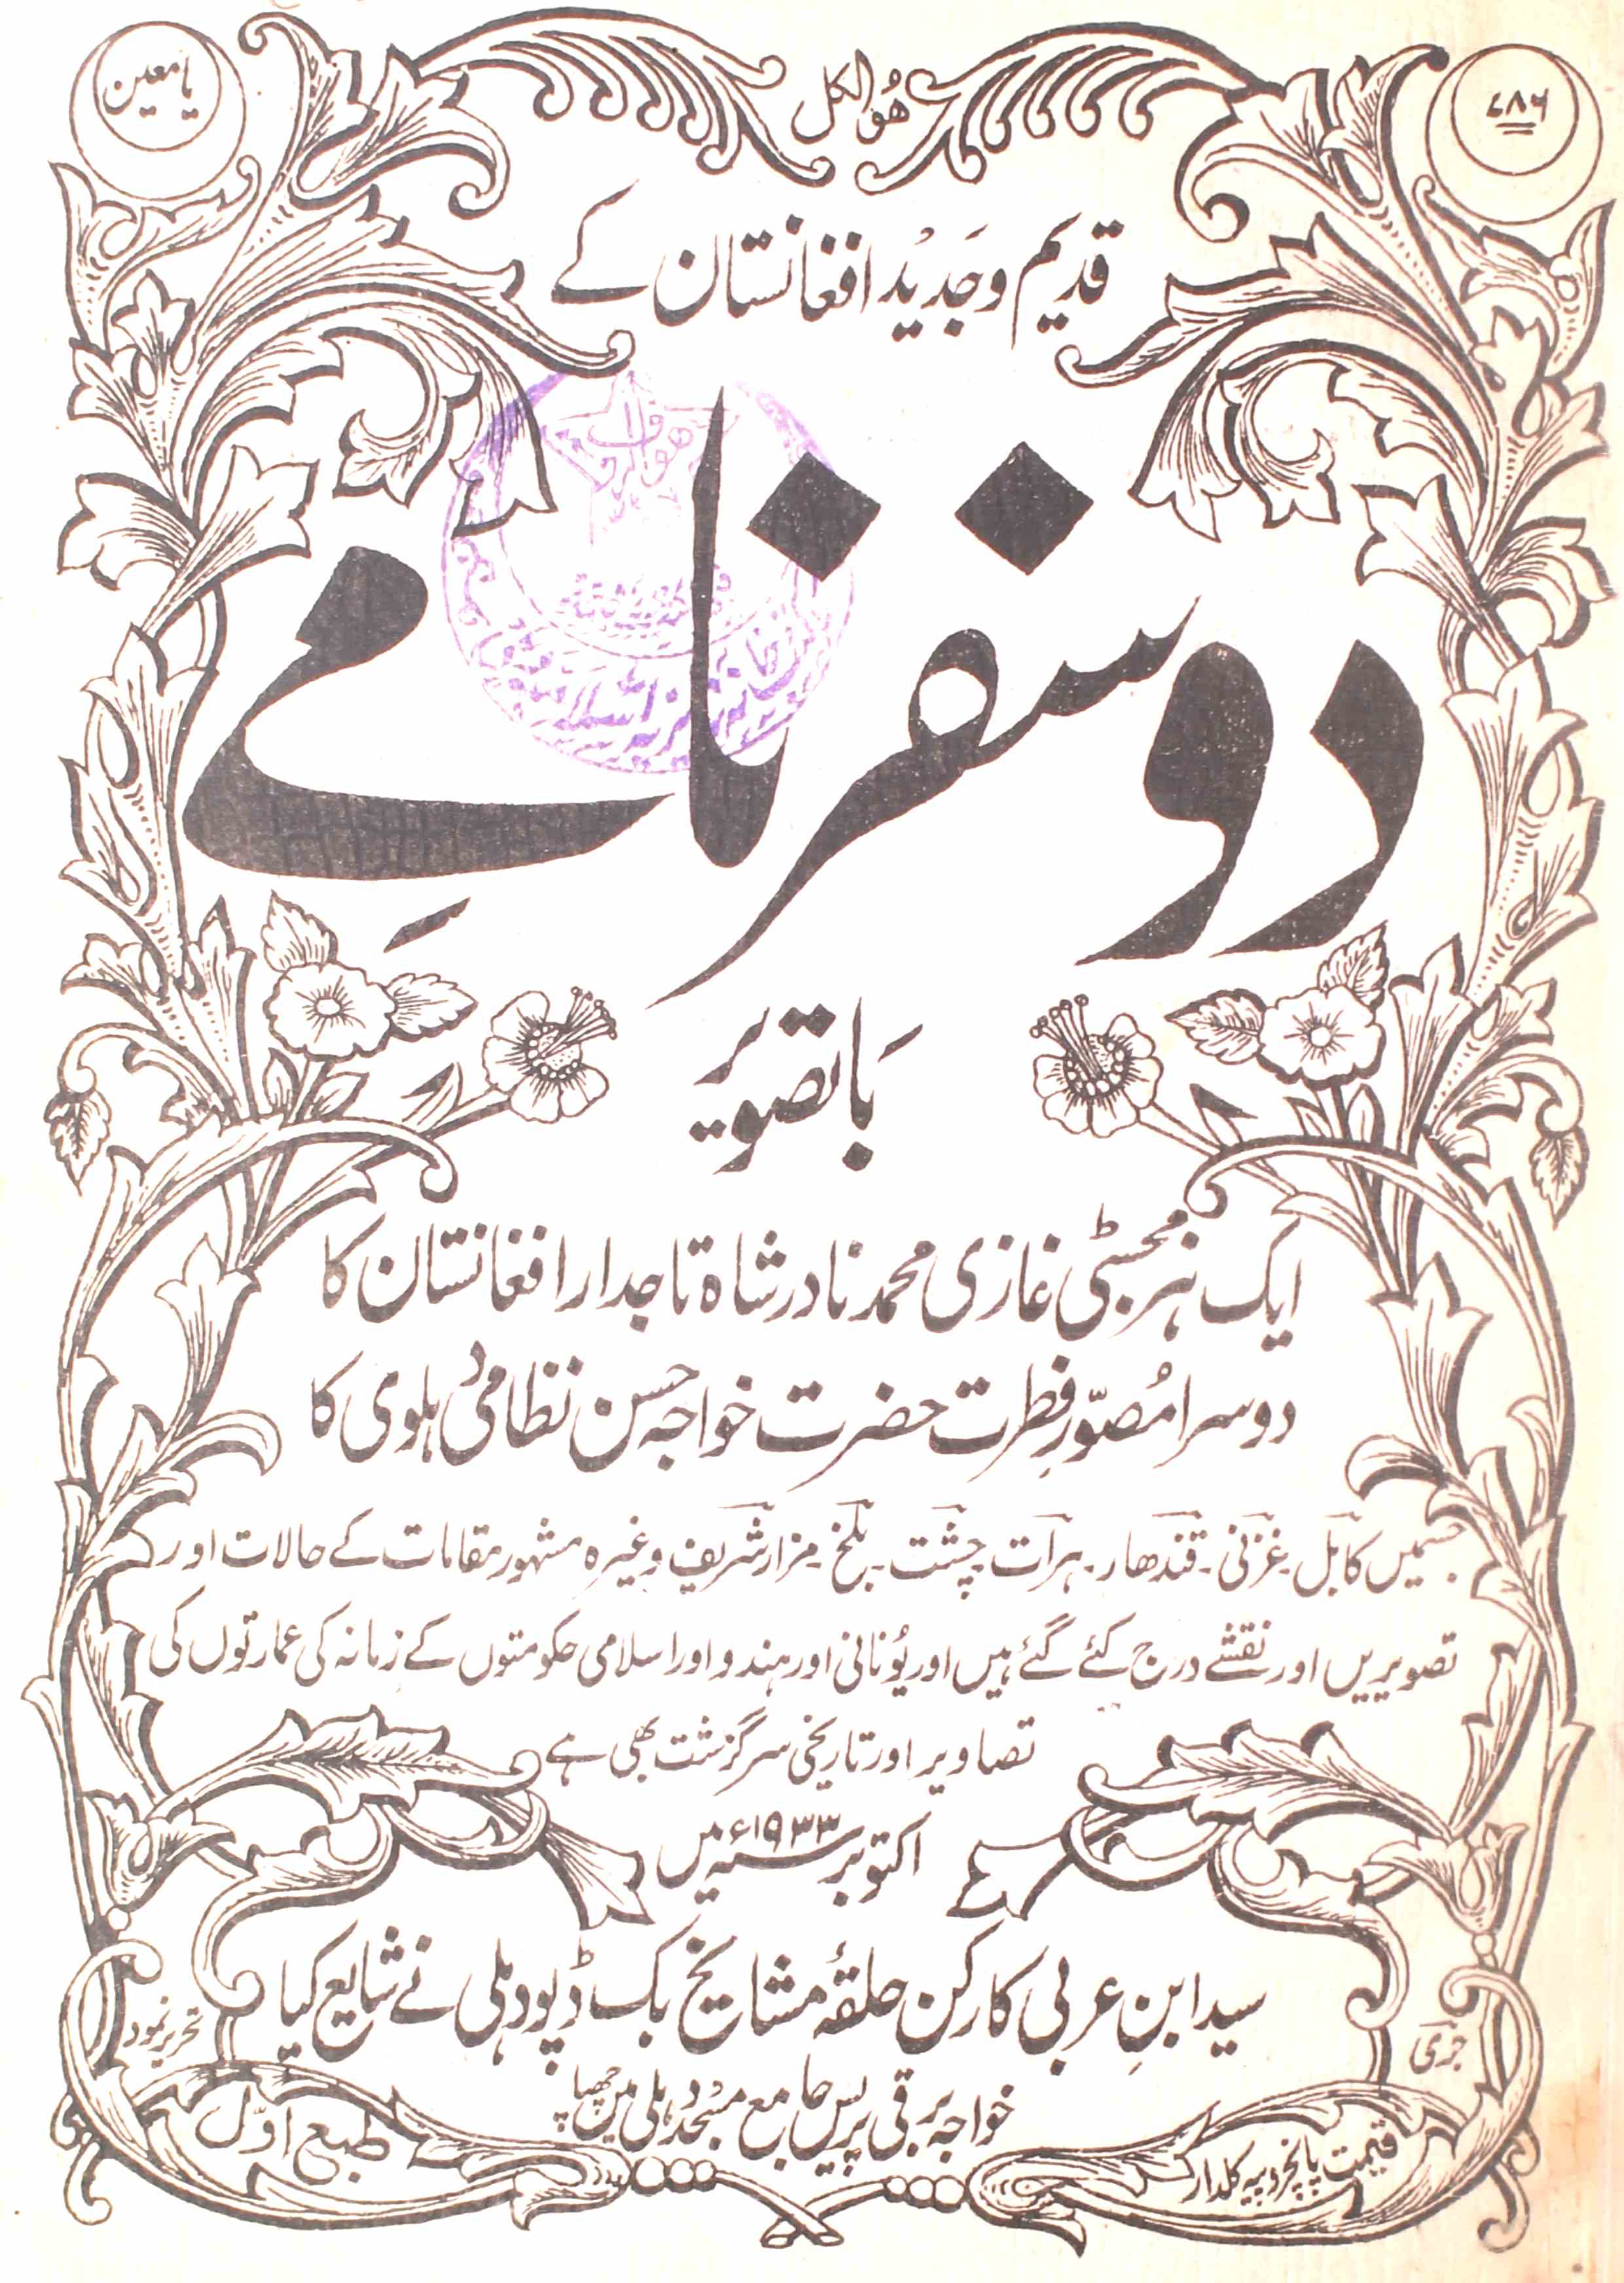 ۷۸۶
ھو الکل
یا معین
قدیم و جدید افغانستان کے
دو سفر نامے
باتصویر
ایک ہز مجسٹی غازی محمد نادر شاہ تاجدار افغانستان کا
دوسرا مُصوّرِ فطرت حضرت خواجہ حسن نظامی دہلوی کا
جسمیں کابل۔ غزنی۔ قندھار۔ ہرات۔ چشت۔ بلخ۔ مزار شریف وغیرہ مشہور مقامات کے حالات اور
تصویریں اور نقشے درج کئے گئے ہیں اور یُونانی اور ہندو اور اسلامی حکومتوں کے زمانہ کی عمارتوں کی
تصاویر اور تاریخی سرگزشت بھی ہے
اکتوبر ۱۹۳۳ء میں
سید ابنِ عربی کارکن حلقۂ مشایخ بک ڈپو دہلی نے شایع کیا
خواجہ برقی پریس جامع مسجد دہلی میں چھپا
تحریر نمود
طبع اوّل
قیمت پانچروپیہ کلدار